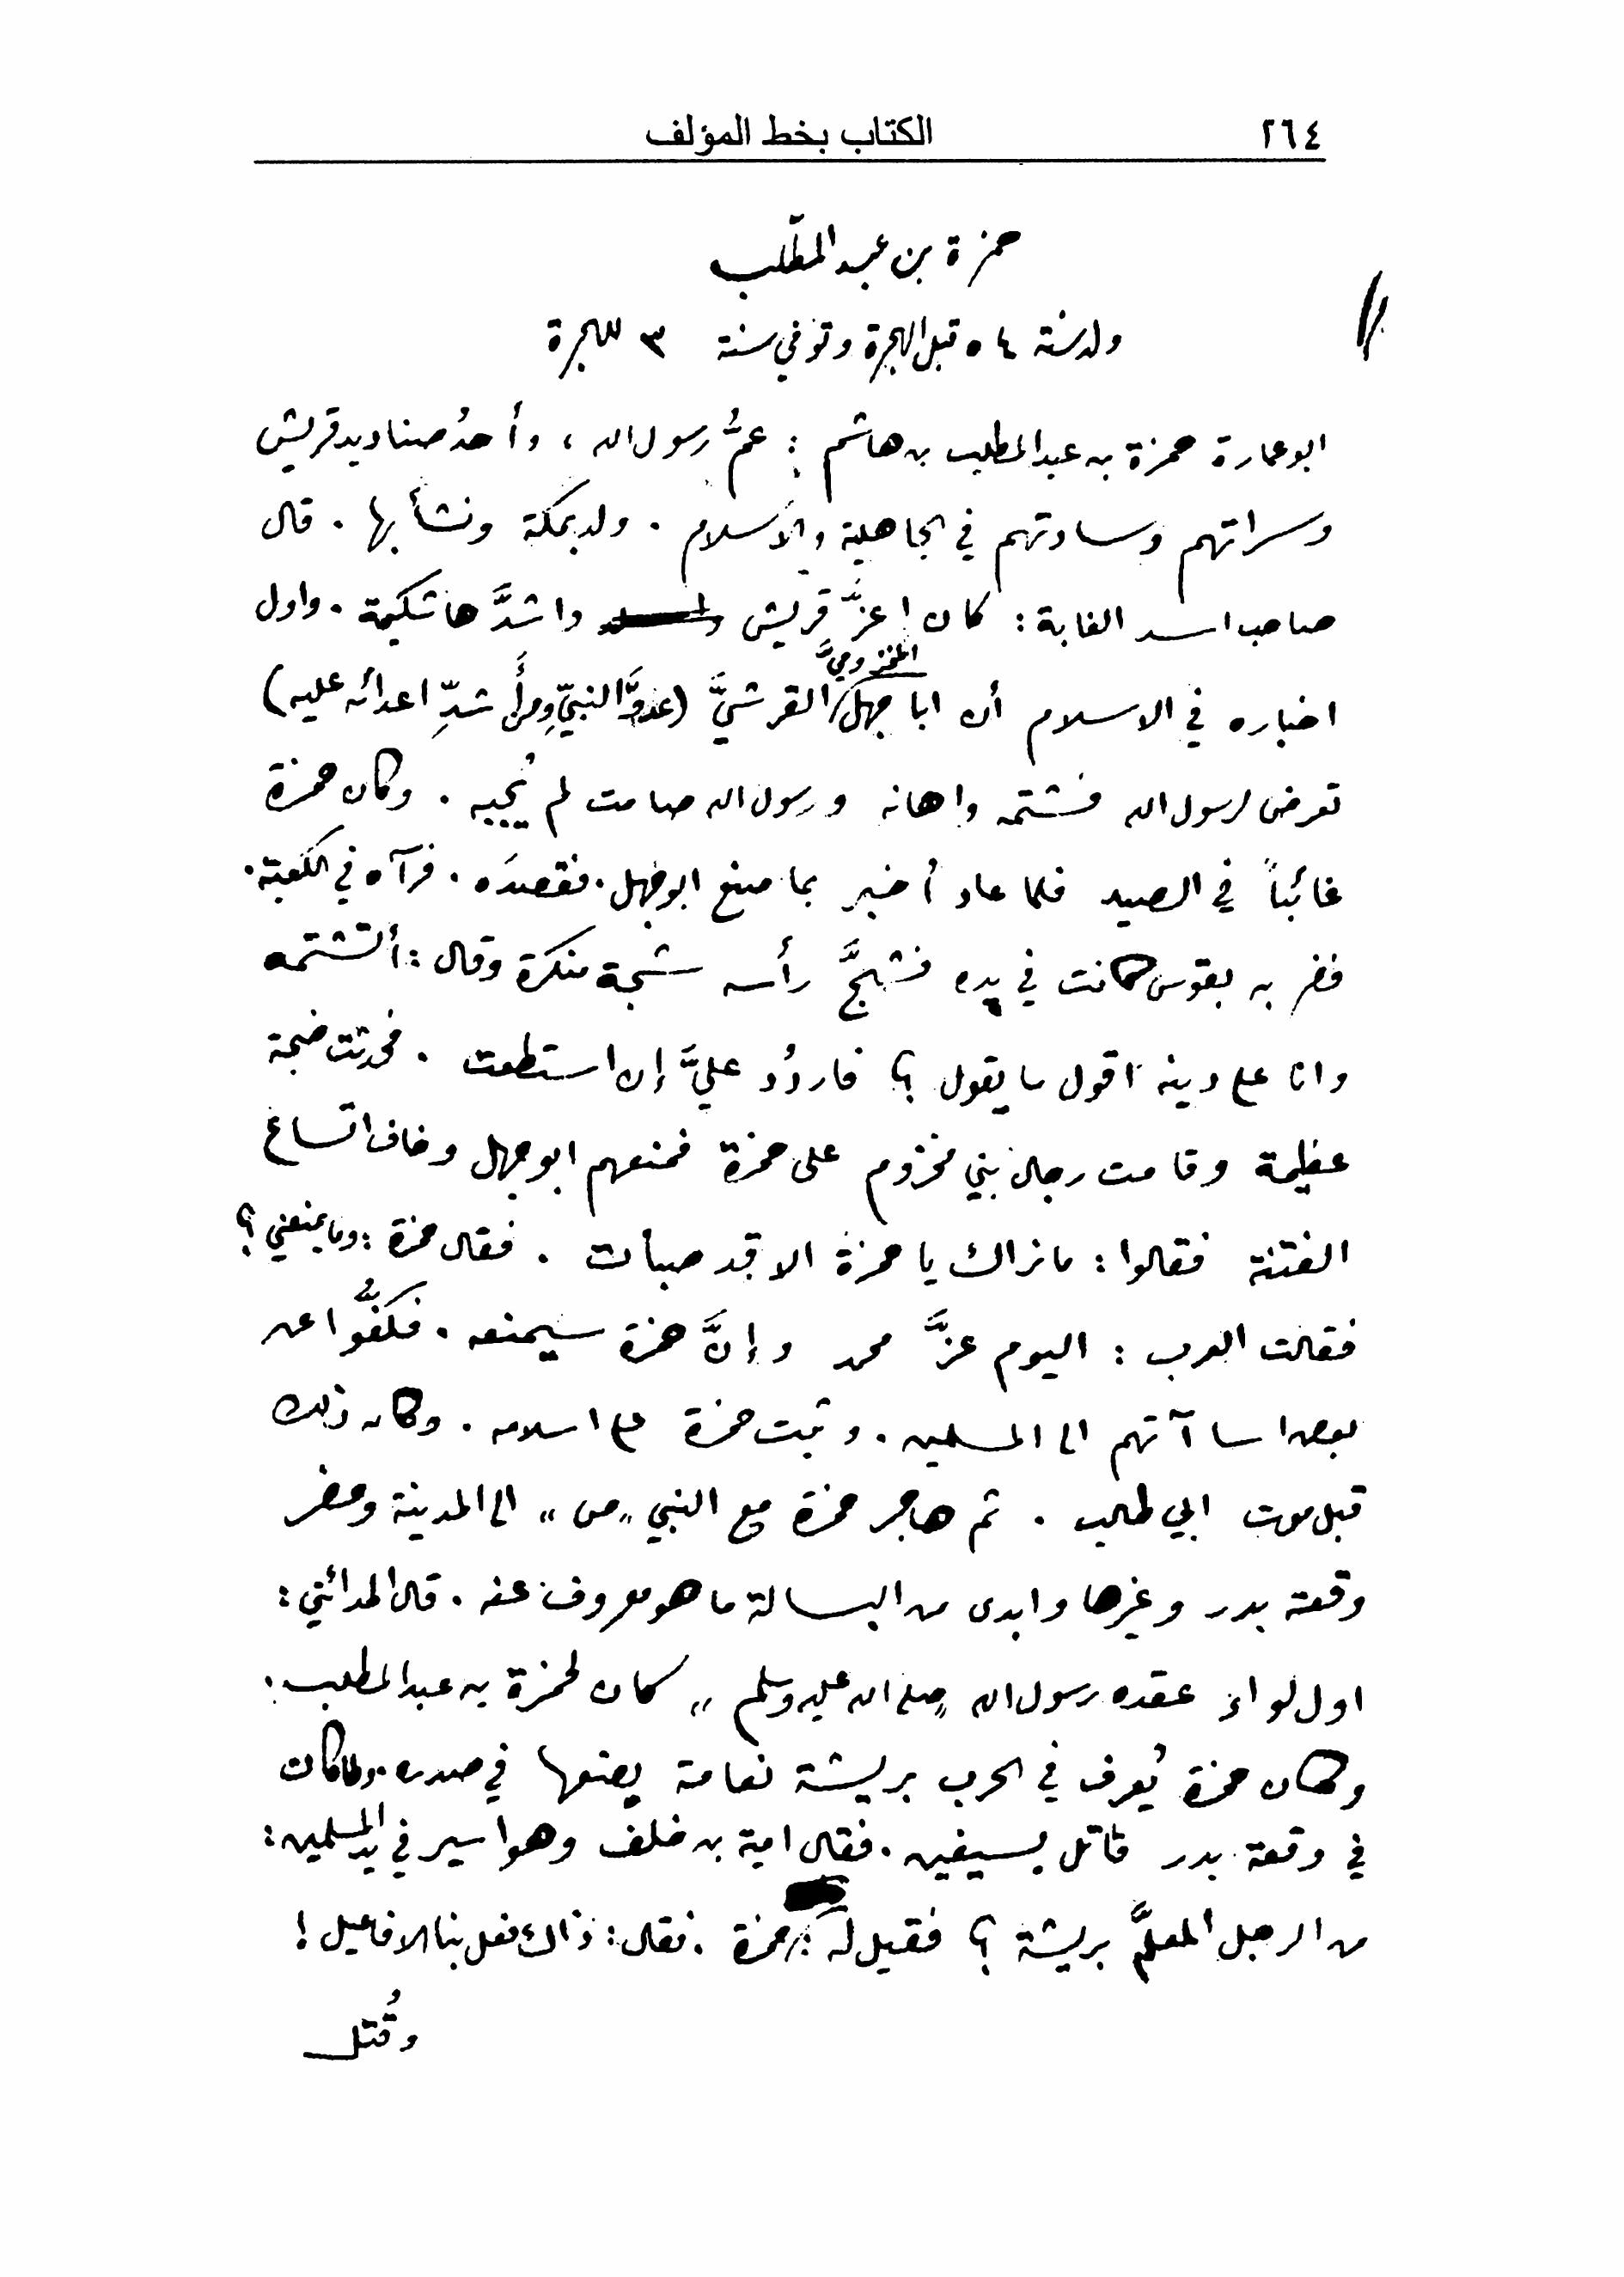 ٢٦٤ الكتاب بخط المؤلف
حمزة بن عبد المطّلب
ولد سنة ٥٤ قبل الهجرة وتوفي سنة ٣ للهجرة
ابو عمارة حمزة بن عبد المطلب بن هاشم : عمُّ رسول الله ، وأحدُ صناديد قريش
وسراتهم وساداتهم في الجاهلية والأسلام . ولد بمكة ونشأ بها . قال
صاحب اسد الغابة : كان اعزَّ قريش واشدَّها شكيمة . واول
اخباره في الاسلام أن ابا جهل المخزوميَّ القرشيَّ (عدوَّ النبيّ ومن أشدِّ اعدائه عليه)
تعرض لرسول الله فشتمه واهانه ورسول الله صامت لم يُجبه . وكان حمزة
غائباً في الصيد فلما عاد أُخبر بما صنع ابو جهل . فقصدَه . فرآه في الكعبة .
فضربه بقوس كانت في يده فشجَّ رأسه شجة منكرة وقال : أتشتمه
وانا على دينه اقول ما يقول ؟ فاردُد عليَّ إن استطعت . فحدثت ضجة
عظيمة وقامت رجال بني مخزوم على حمزة فمنعهم ابو جهل وخاف اتساع
الفتنة فقالوا : ما نراك يا حمزة الا قد صبأت . فقال حمزة : وما يمنعني ؟
فقالت العرب : اليوم عزَّ محمد وإنَّ حمزة سيمنعه . فكفُّوا عن
بعض اساآتهم الى المسلمين . وثبت حمزة على اسلامه . وكان ذلك
قبل موت ابي طالب . ثم هاجر حمزة مع النبي „ ص „ الى المدينة وحضر
وقعة بدر وغيرها وابدى من البسالة ما هو معروف عنه . قال المدائني :
اول لواء عقده رسول الله „ صلى الله عليه وسلم „ كان لحمزة بن عبد المطلب .
وكان حمزة يُعرف في الحرب بريشة نعامة يضعها في صدره . ولما كانت
في وقعة بدر قاتل بسيفين . فقال امية بن خلف وهو اسير في يد المسلمين :
من الرجل المعلَّم بريشة ؟ فقيل له : حمزة . فقال : ذاك فعل بنا الافاعيل !
وقُتل